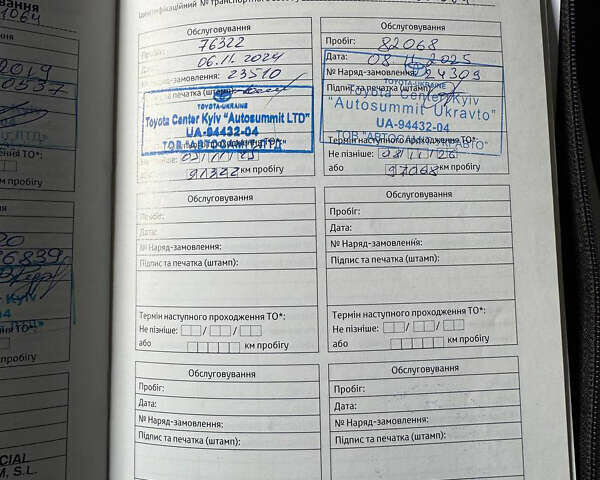 Ідентифікаційний № транспортного
Обслуговування
76322
06.11.2024
№ Наряд-замовлення: 23510
Підпис та печатка (штамп):
TOYOTA-UKRAINE
Toyota Center Kyiv "Autosummit LTD"
UA-94432-04
91322 км пробігу
Обслуговування
Пробіг: 82068
Дата: 08 2025
№ Наряд-замовлення: 24309
Підпис та печатка (штамп):
TOYOTA-UKRAINE
Toyota Center Kyiv
"Autosummit Ukravto"
UA-94432-04
Термін наступного проходження ТО*:
Не пізніше: 08/11/26
або 97068 км пробігу
Обслуговування
Пробіг:
Дата:
№ Наряд-замовлення:
Підпис та печатка (штамп):
Термін наступного проходження ТО*:
Не пізніше: / /
або км пробігу
Обслуговування
Пробіг:
Дата:
№ Наряд-замовлення:
Підпис та печатка (штамп):
Термін наступного проходження ТО*:
Не пізніше: / /
або км пробігу
Обслуговування
Пробіг:
Дата:
№ Наряд-замовлення:
Підпис та печатка (штамп):
Обслуговування
Пробіг:
Дата:
№ Наряд-замовлення:
Підпис та печатка (штамп):